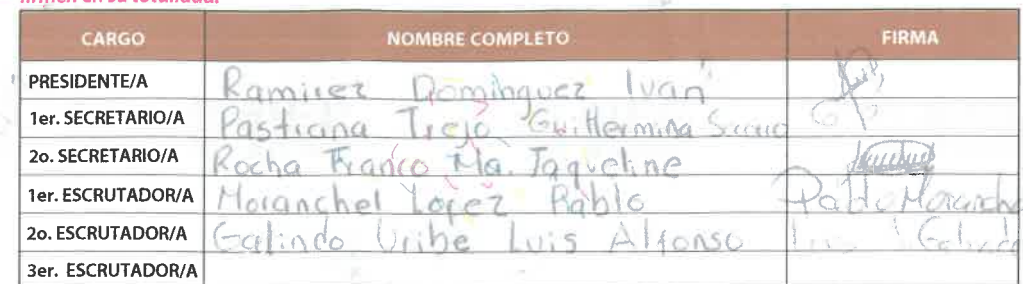 firmen en su totalidad.
CARGO NOMBRE COMPLETO FIRMA
PRESIDENTE/A Ramirez Dominguez Iván
1er. SECRETARIO/A Pastrana Trejo Guillermina
2o. SECRETARIO/A Rocha Franco Ma. Jaqueline
1er. ESCRUTADOR/A Moranchel López Pablo Pablo Moranchel
2o. ESCRUTADOR/A Galindo Uribe Luis Alfonso Luis Galindo
3er. ESCRUTADOR/A